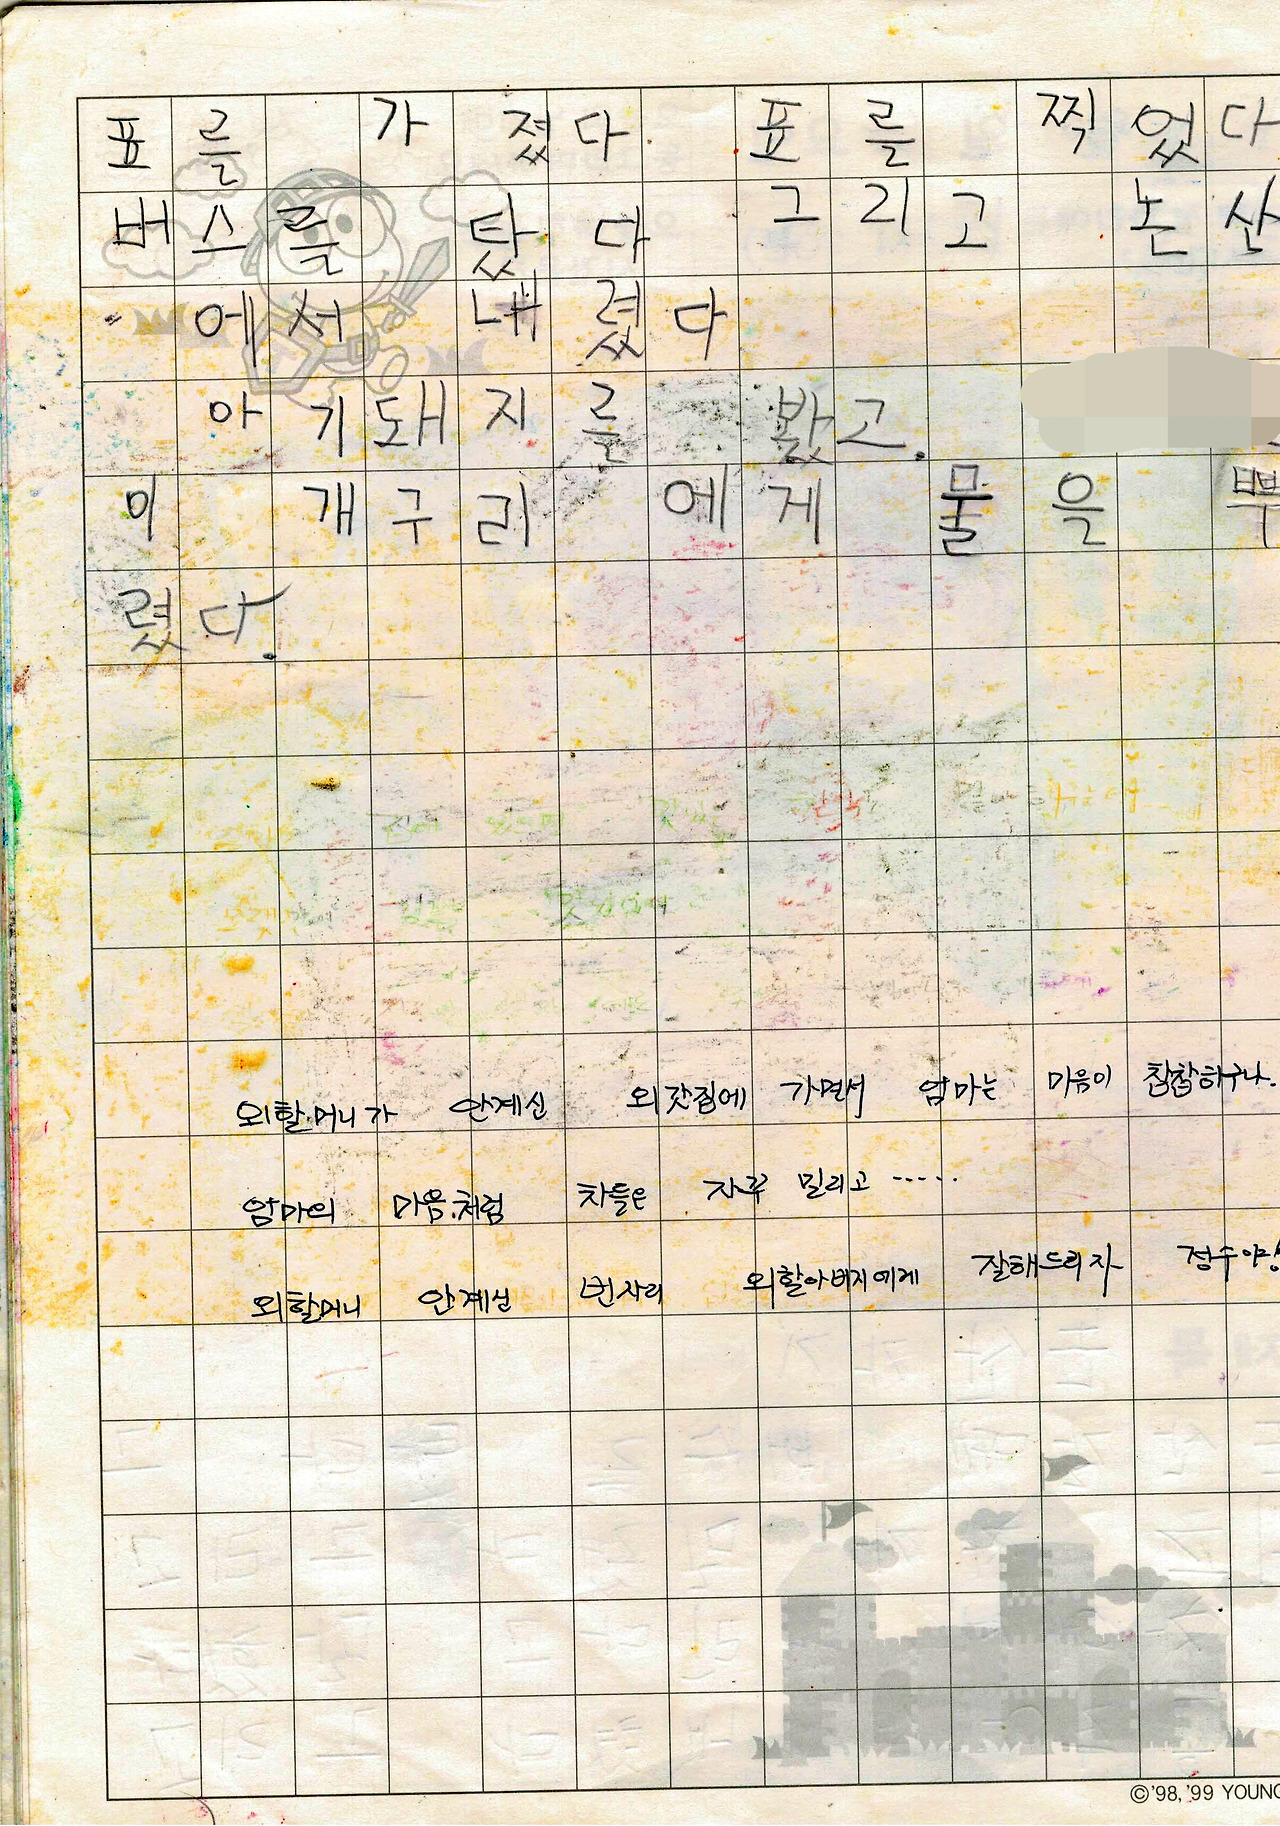 표를 가졌다. 표를 찍었다.
버스를 탔다 그리고 논산
에서 내렸다
아기돼지를 봤고.
이 개구리에게 물을 뿌
렸다.
외할머니가 안계신 외갓집에 가면서 엄마는 마음이 참참하구나.
엄마의 마음처럼 차들은 자꾸 밀리고 ······
외할머니 안계신 빈자리 외할아버지에게 잘해드리자 정수야!
©'98, '99 YOUNG